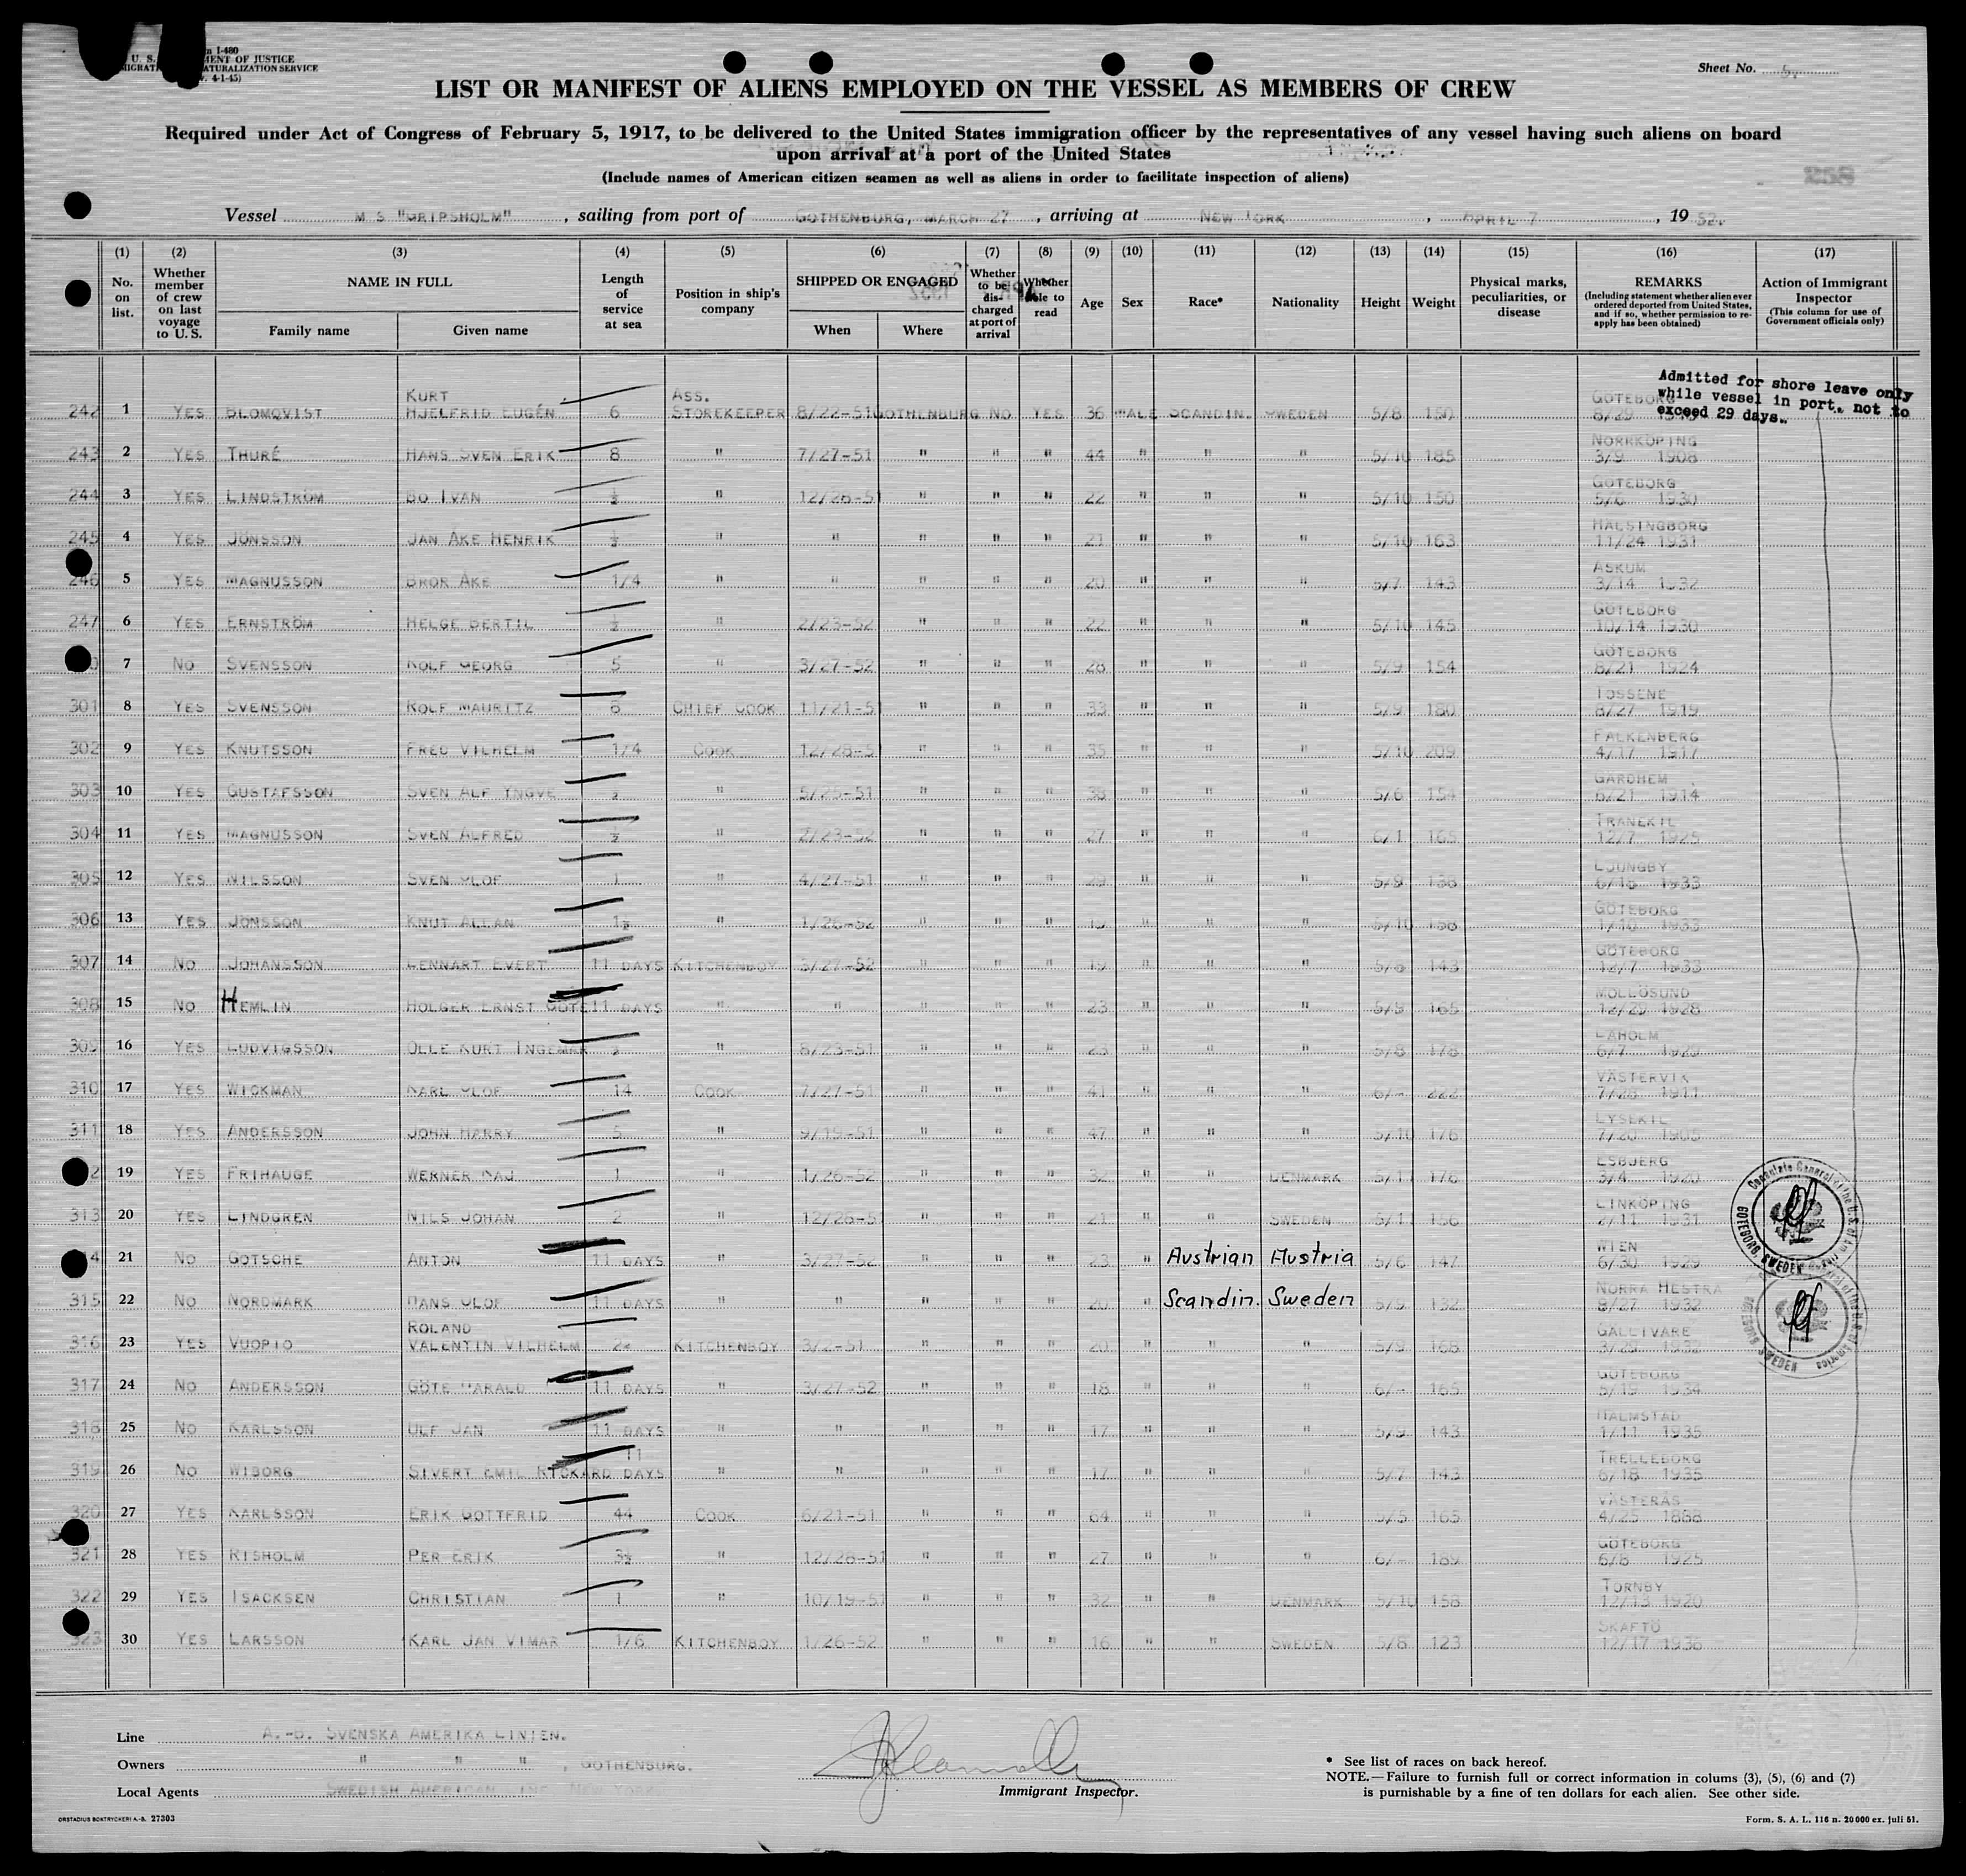 n I-480
U. S. MENT OF JUSTICE
MIGRATI ATURALIZATION SERVICE
v. 4-1-45)
Sheet No. 9.
LIST OR MANIFEST OF ALIENS EMPLOYED ON THE VESSEL AS MEMBERS OF CREW
Required under Act of Congress of February 5, 1917, to be delivered to the United States immigration officer by the representatives of any vessel having such aliens on board
upon arrival at a port of the United States
(Include names of American citizen seamen as well as aliens in order to facilitate inspection of aliens)
258
Vessel M S "GRIPSHOLM", sailing from port of GOTHENBURG, MARCH 27, arriving at NEW YORK, APRIL 7, 19 52.
(1) No. on list.
(2) Whether member of crew on last voyage to U. S.
(3) NAME IN FULL Family name Given name
(4) Length of service at sea
(5) Position in ship's company
(6) SHIPPED OR ENGAGED When Where
(7) Whether to be discharged at port of arrival
(8) Whether able to read
(9) Age
(10) Sex
(11) Race*
(12) Nationality
(13) Height
(14) Weight
(15) Physical marks, peculiarities, or disease
(16) REMARKS (Including statement whether alien ever ordered deported from United States, and if so, whether permission to re-apply has been obtained)
(17) Action of Immigrant Inspector (This column for use of Government officials only)
Admitted for shore leave only
while vessel in port, not to
exceed 29 days.
242 1 YES BLOMQVIST KURT HJELFRID EUGÉN 6 ASS. STOREKEEPER 8/22-51 GOTHENBURG NO YES 36 MALE SCANDIN. SWEDEN 5/8 150 GÖTEBORG 8/29
243 2 YES THURÉ HANS SVEN ERIK 8 " 7/27-51 " " " 44 " " " 5/10 185 NORRKÖPING 3/9 1908
244 3 YES LINDSTRÖM BO IVAN ½ " 12/28-51 " " " 22 " " " 5/10 150 GÖTEBORG 5/6 1930
245 4 YES JÖNSSON JAN ÅKE HENRIK ½ " " " " " 21 " " " 5/10 163 HÄLSINGBORG 11/24 1931
246 5 YES MAGNUSSON BROR ÅKE 1/4 " " " " " 20 " " " 5/7 143 ASKUM 3/14 1932
247 6 YES ERNSTRÖM HELGE BERTIL ½ " 2/23-52 " " " 22 " " " 5/10 145 GÖTEBORG 10/14 1930
7 NO SVENSSON ROLF GEORG 5 " 3/27-52 " " " 28 " " " 5/9 154 GÖTEBORG 8/21 1924
301 8 YES SVENSSON ROLF MAURITZ CHIEF COOK 11/21-51 " " " 33 " " " 5/9 180 TOSSENE 8/27 1919
302 9 YES KNUTSSON FRED VILHELM 1/4 COOK 12/28-51 " " " 35 " " " 5/10 209 FALKENBERG 4/17 1917
303 10 YES GUSTAFSSON SVEN ALF YNGVE ½ " 5/25-51 " " " 38 " " " 5/6 154 GÄRDHEM 6/21 1914
304 11 YES MAGNUSSON SVEN ALFRED ½ " 2/23-52 " " " 27 " " " 6/1 165 TRANEKIL 12/7 1925
305 12 YES NILSSON SVEN OLOF 1 " 4/27-51 " " " 29 " " " 5/9 138 LJUNGBY 6/18 1933
306 13 YES JÖNSSON KNUT ALLAN 1½ " 1/26-52 " " " 19 " " " 5/10 158 GÖTEBORG 1/10 1933
307 14 NO JOHANSSON LENNART EVERT 11 DAYS KITCHENBOY 3/27-52 " " " 19 " " " 5/8 143 GÖTEBORG 12/7 1933
308 15 NO HEMLIN HOLGER ERNST GÖTE 11 DAYS " " " " " 23 " " " 5/9 165 MOLLÖSUND 12/29 1928
309 16 YES LUDVIGSSON OLLE KURT INGEMAR ½ " 8/23-51 " " " 23 " " " 5/8 178 LAHOLM 6/7 1929
310 17 YES WICKMAN KARL OLOF 14 COOK 7/27-51 " " " 41 " " " 6/- 222 VÄSTERVIK 7/28 1911
311 18 YES ANDERSSON JOHN HARRY 5 " 9/19-51 " " " 47 " " " 5/10 176 LYSEKIL 7/20 1905
2 19 YES FRIHAUGE WERNER KAJ 1 " 1/26-52 " " " 32 " " DENMARK 5/11 176 ESBJERG 3/4 1920
313 20 YES LINDGREN NILS JOHAN 2 " 12/28-51 " " " 21 " " SWEDEN 5/11 156 LINKÖPING 2/11 1931
4 21 NO GOTSCHE ANTON 11 DAYS " 3/27-52 " " " 23 " Austrian Austria 5/6 147 WIEN 6/30 1929
315 22 NO NORDMARK HANS OLOF 11 DAYS " " " " " 20 " Scandin. Sweden 5/9 132 NORRA HESTRA 8/27 1932
316 23 YES VUOPIO ROLAND VALENTIN VILHELM 2½ KITCHENBOY 3/2-51 " " " 20 " " " 5/9 168 GÄLLIVARE 3/29 1932
317 24 NO ANDERSSON GÖTE HARALD 11 DAYS " 3/27-52 " " " 18 " " " 6/- 165 GÖTEBORG 5/19 1934
318 25 NO KARLSSON ULF JAN 11 DAYS " " " " " 17 " " " 5/9 143 HALMSTAD 1/11 1935
319 26 NO WIBORG SIVERT EMIL RICKARD 11 DAYS " " " " " 17 " " " 5/7 143 TRELLEBORG 6/18 1935
320 27 YES KARLSSON ERIK GOTTFRID 44 COOK 6/21-51 " " " 64 " " " 5/5 165 VÄSTERÅS 4/25 1888
321 28 YES RISHOLM PER ERIK 3½ " 12/28-51 " " " 27 " " " 6/- 189 GÖTEBORG 6/8 1925
322 29 YES ISACKSEN CHRISTIAN 1 " 10/19-51 " " " 32 " " DENMARK 5/10 158 TORNBY 12/13 1920
323 30 YES LARSSON KARL JAN VIMAR 1/6 KITCHENBOY 1/26-52 " " " 16 " " SWEDEN 5/8 123 SKAFTÖ 12/17 1936
Consulate General of the U. S. of Am
GÖTEBORG, SWEDEN
Line A.-B. SVENSKA AMERIKA LINIEN.
Owners " " " , GOTHENBURG.
Local Agents SWEDISH AMERICAN LINE NEW YORK
Immigrant Inspector.
* See list of races on back hereof.
NOTE.—Failure to furnish full or correct information in colums (3), (5), (6) and (7)
is punishable by a fine of ten dollars for each alien. See other side.
ORSTADIUS BOKTRYCKERI A.-B. 27303
Form. S. A. L. 116 n. 20000 ex. juli 51.